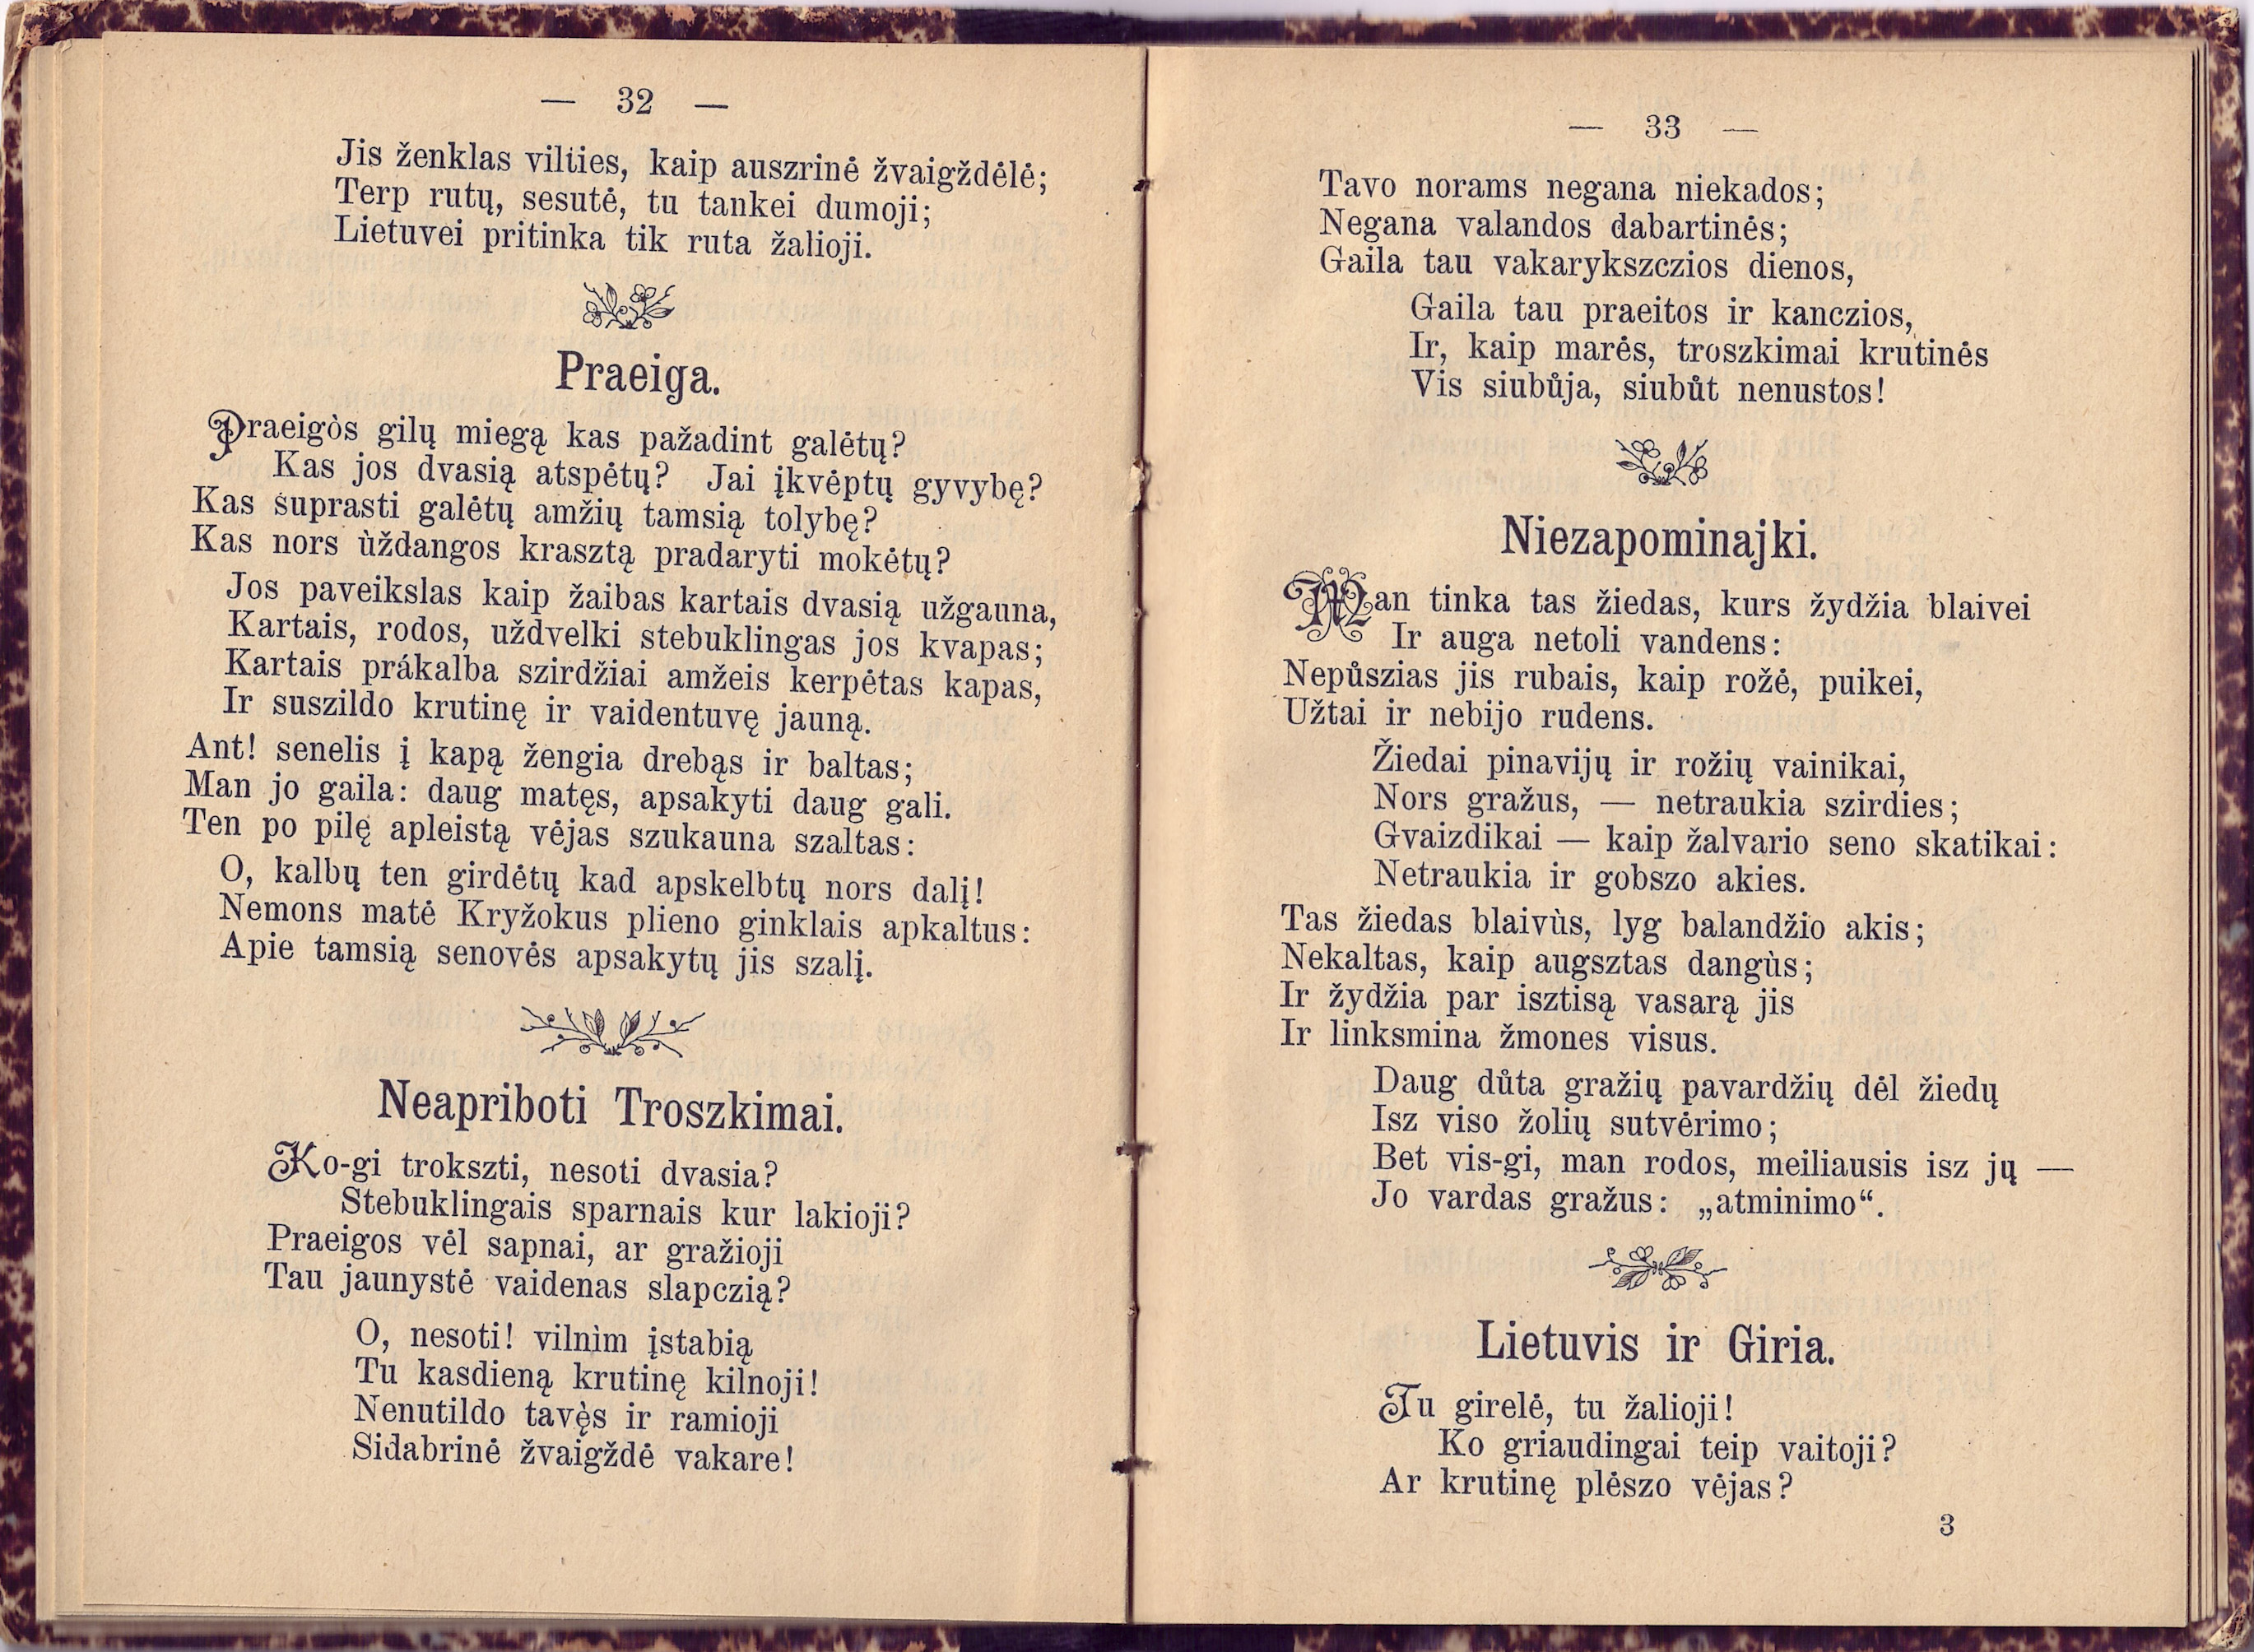 — 32 —
Jis ženklas vilties, kaip auszrinė žvaigždėlė;
Terp rutų, sesutė, tu tankei dumoji;
Lietuvei pritinka tik ruta žalioji.
Praeiga.
Praeigòs gilų miegą kas pažadint galėtų?
Kas jos dvasią atspėtų? Jai įkvėptų gyvybę?
Kas suprasti galėtų amžių tamsią tolybę?
Kas nors ùždangos krasztą pradaryti mokėtų?
Jos paveikslas kaip žaibas kartais dvasią užgauna,
Kartais, rodos, uždvelki stebuklingas jos kvapas;
Kartais prákalba szirdžiai amžeis kerpėtas kapas,
Ir suszildo krutinę ir vaidentuvę jauną.
Ant! senelis į kapą žengia drebąs ir baltas;
Man jo gaila: daug matęs, apsakyti daug gali.
Ten po pilę apleistą vėjas szukauna szaltas:
O, kalbų ten girdėtų kad apskelbtų nors dalį!
Nemons matė Kryžokus plieno ginklais apkaltus:
Apie tamsią senovės apsakytų jis szalį.
Neapriboti Troszkimai.
Ko-gi trokszti, nesoti dvasia?
Stebuklingais sparnais kur lakioji?
Praeigos vėl sapnai, ar gražioji
Tau jaunystė vaidenas slapczią?
O, nesoti! vilnìm įstabią
Tu kasdieną krutinę kilnoji!
Nenutildo tavę̀s ir ramioji
Sidabrinė žvaigždė vakare!
— 33 —
Tavo norams negana niekados;
Negana valandos dabartinės;
Gaila tau vakarykszczios dienos,
Gaila tau praeitos ir kanczios,
Ir, kaip marės, troszkimai krutinės
Vis siubůja, siubůt nenustos!
Niezapominajki.
Man tinka tas žiedas, kurs žydžia blaivei
Ir auga netoli vandens:
Nepůszias jis rubais, kaip rožė, puikei,
Užtai ir nebijo rudens.
Žiedai pinavijų ir rožių vainikai,
Nors gražus, — netraukia szirdies;
Gvaizdikai — kaip žalvario seno skatikai:
Netraukia ir gobszo akies.
Tas žiedas blaivùs, lyg balandžio akis;
Nekaltas, kaip augsztas dangùs;
Ir žydžia par isztisą vasarą jis
Ir linksmina žmones visus.
Daug důta gražių pavardžių dėl žiedų
Isz viso žolių sutvėrimo;
Bet vis-gi, man rodos, meiliausis isz jų —
Jo vardas gražus: „atminimo“.
Lietuvis ir Giria.
Tu girelė, tu žalioji!
Ko griaudingai teip vaitoji?
Ar krutinę plėszo vėjas?
3